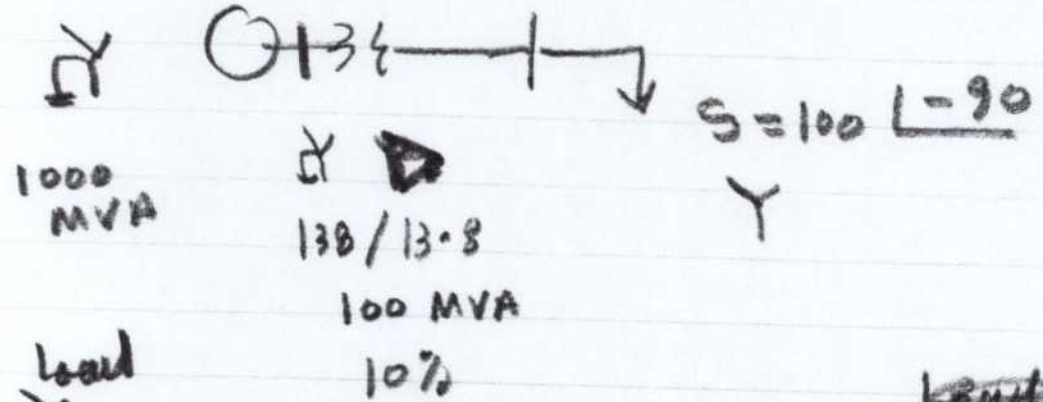 S = 100 ∠-90
1000
MVA
Y
138 / 13.8
100 MVA
Load
10%